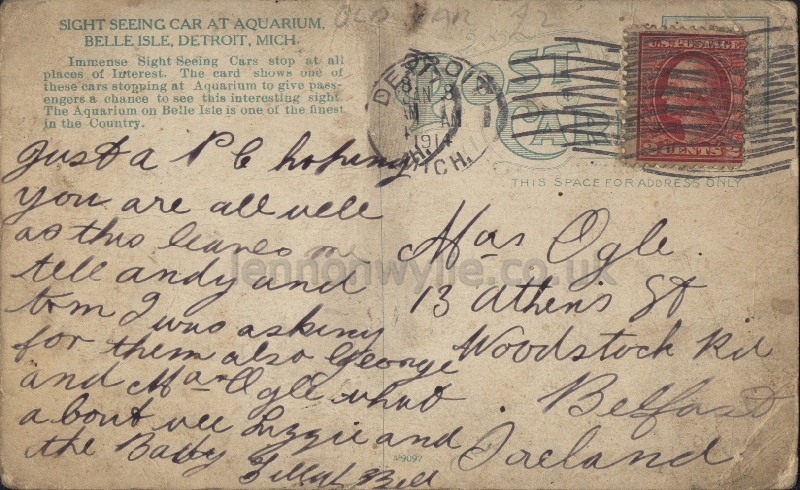 SIGHT SEEING CAR AT AQUARIUM,
BELLE ISLE, DETROIT, MICH.
Immense Sight Seeing Cars stop at all
places of Interest. The card shows one of
these cars stopping at Aquarium to give pass-
engers a chance to see this interesting sight.
The Aquarium on Belle Isle is one of the finest
in the Country.
OLD CAR
POST CARD
DETROIT
MICH.
AM
U.S. POSTAGE
2 CENTS 2
THIS SPACE FOR ADDRESS ONLY
Just a P C hoping
you are all well
as this leaves me
tell andy and
tom I was asking
for them also George
and Mrs Ogle what
about wee Lizzie and
the Baby
Bell
Mrs Ogle.
13 Athens St
Woodstock Rd
Belfast
Ireland
lennonwylie.co.uk
A-9097